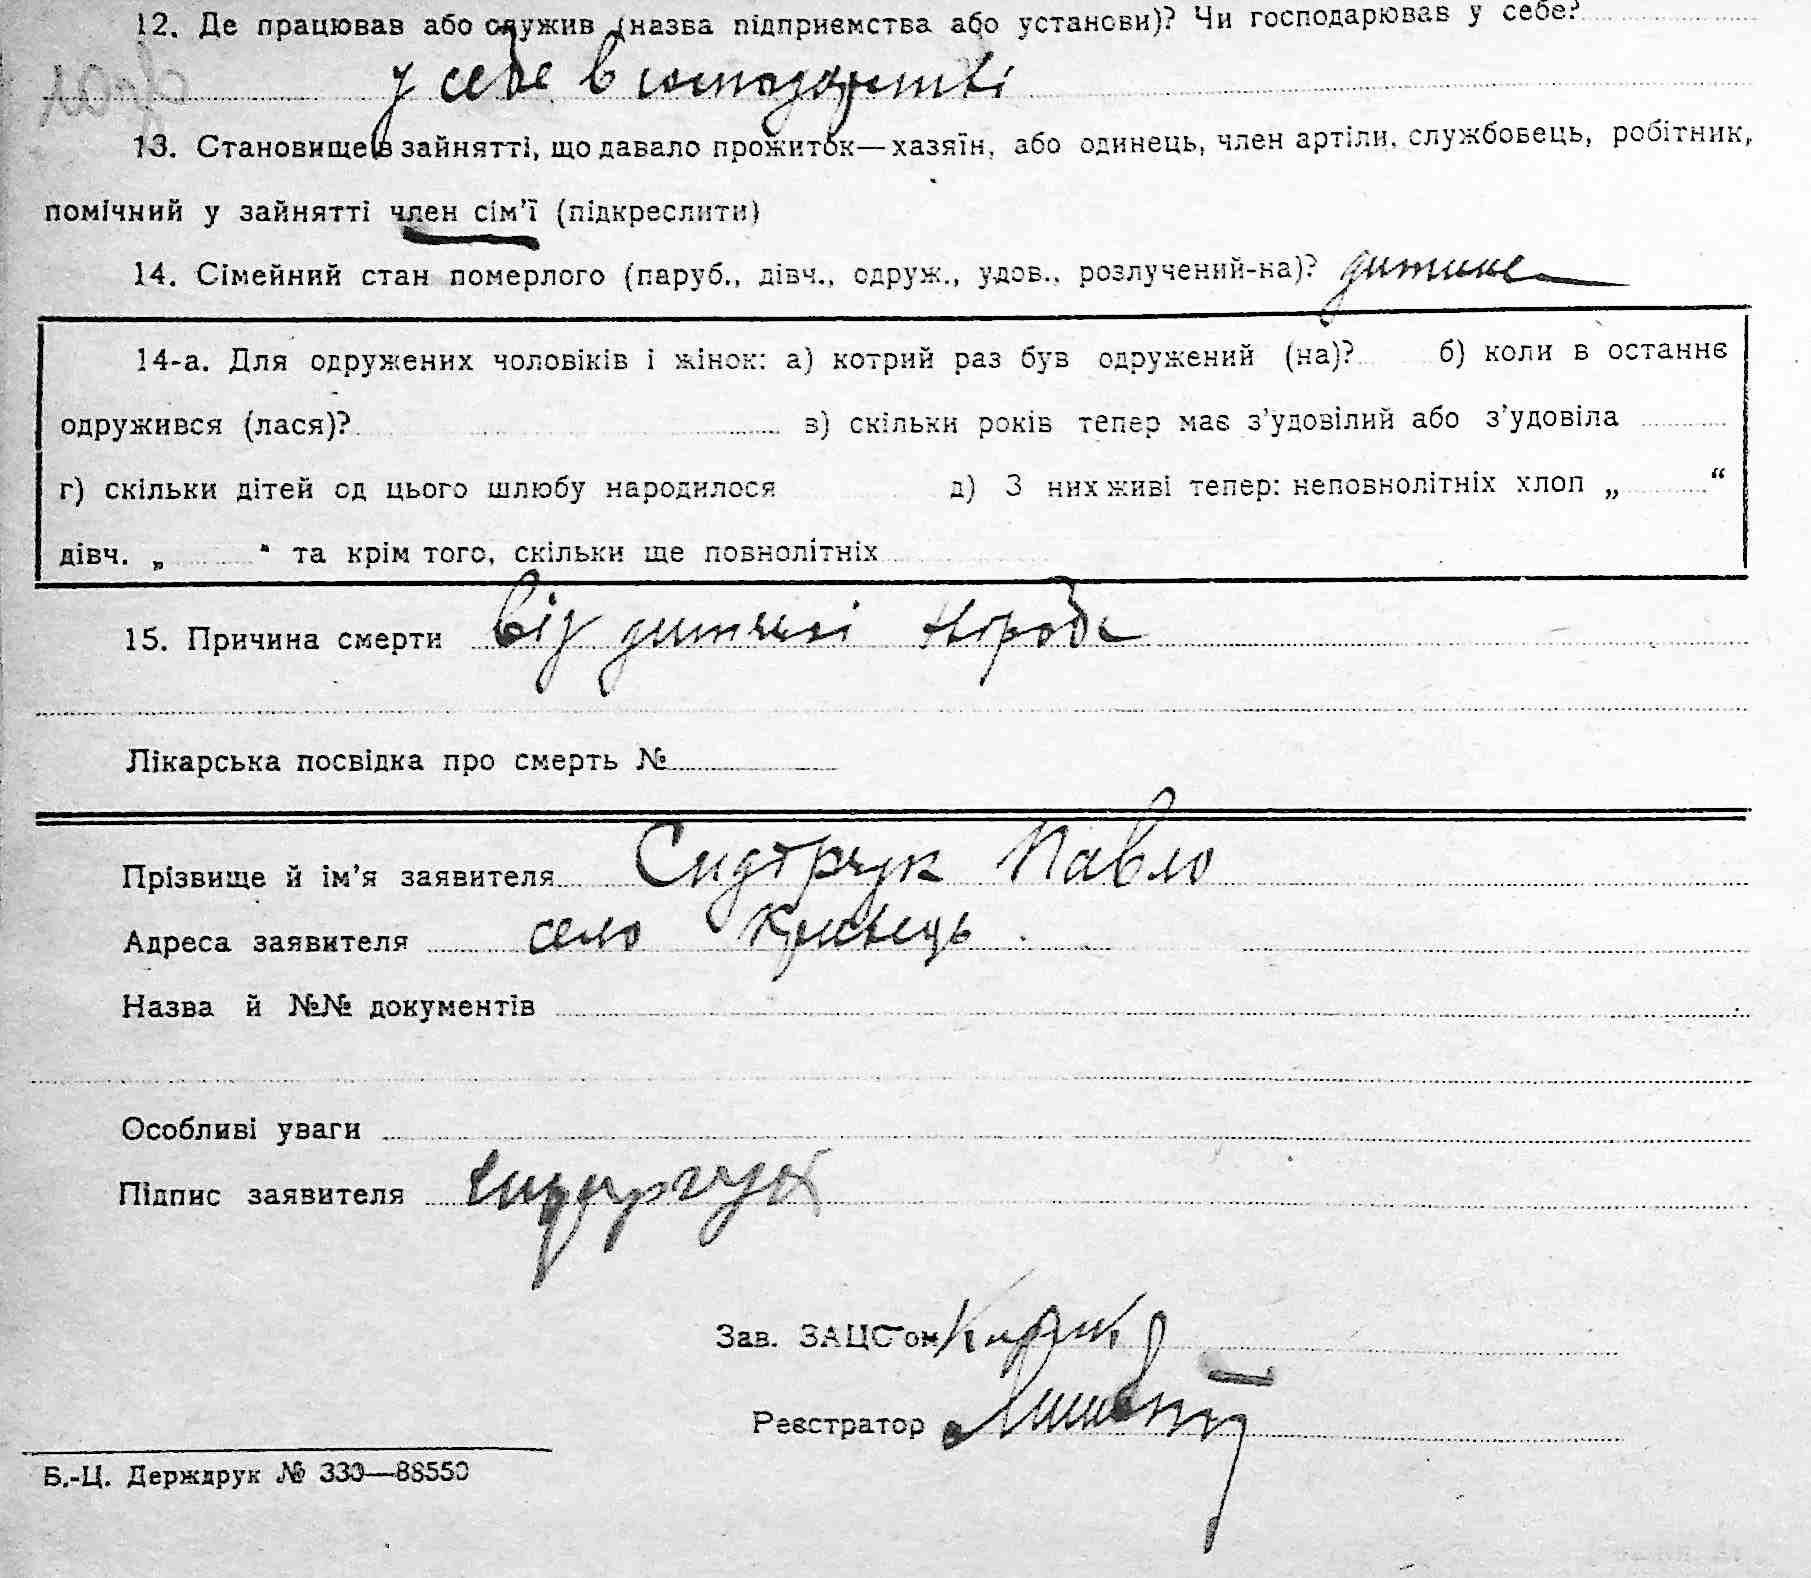 12. Де працював або служив (назва підприємства або установи)? Чи господарював у себе?
у себе в господарстві
13. Становище в зайнятті, що давало прожиток—хазяїн, або одинець, член артіли, службовець, робітник,
помічний у зайнятті член сім’ї (підкреслити)
14. Сімейний стан померлого (паруб., дівч., одруж., удов., розлучений-на)? дитина
14-а. Для одружених чоловіків і жінок: а) котрий раз був одружений (на)? б) коли в останнє
одружився (лася)? в) скільки років тепер має з’удовілий або з’удовіла
г) скільки дітей од цього шлюбу народилося д) З них живі тепер: неповнолітніх хлоп „ “
дівч. „ “ та крім того, скільки ще повнолітніх
15. Причина смерти від дитячої
Лікарська посвідка про смерть №
Прізвище й ім’я заявителя Сидорчук Павло
Адреса заявителя село Кривець
Назва й №№ документів
Особливі уваги
Підпис заявителя Сидорчук
Зав. ЗАЦС‘ом
Реєстратор
Б.-Ц. Держдрук № 330—88550